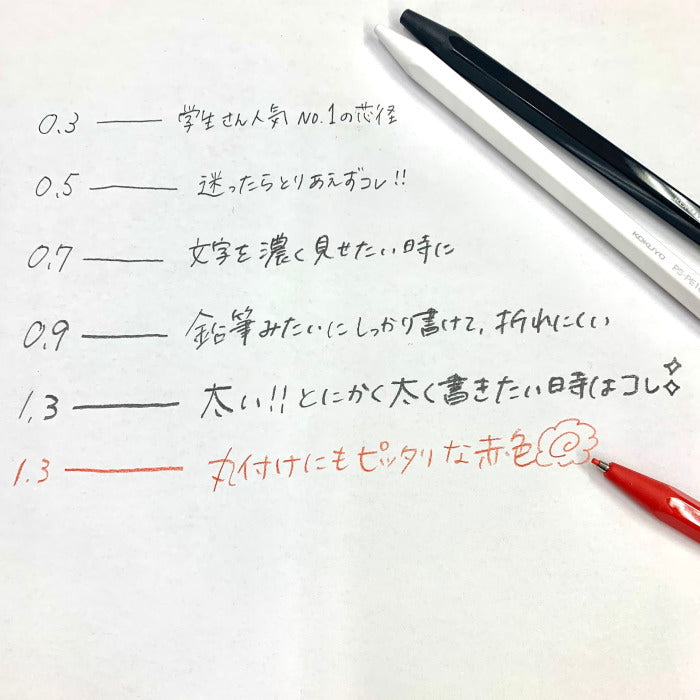 0.3 — 学生さん人気 No.1の芯径
0.5 — 迷ったらとりあえずコレ!!
0.7 — 文字を濃く見せたい時に
0.9 — 鉛筆みたいにしっかり書けて、折れにくい
1.3 — 太い!! とにかく太く書きたい時はコレ
1.3 — 丸付けにもピッタリな赤色
KOKUYO PS-PE1